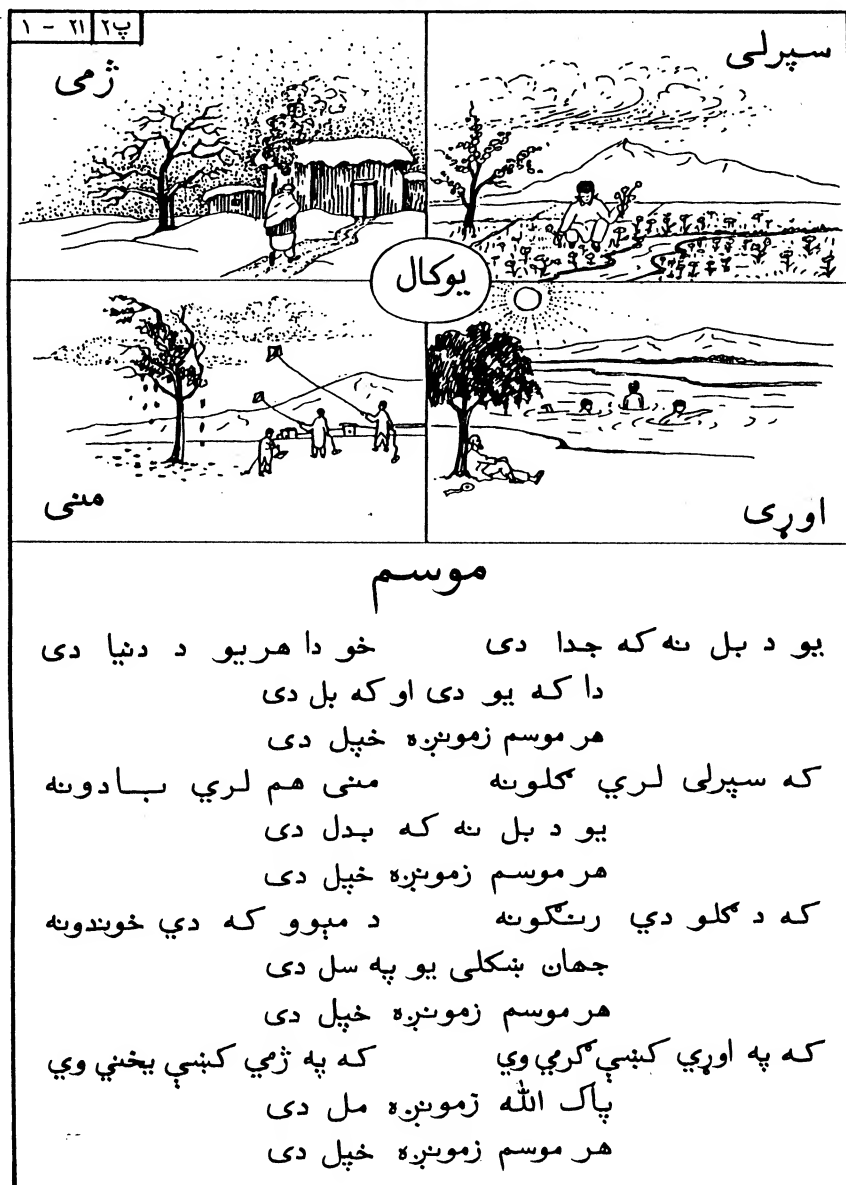 پ۲ ۲۱ - ۱
سپرلی
ژمی
یوکال
اوړی
منی
موسم
یو د بل نه که جدا دی خو دا هریو د دنیا دی
دا که یو دی او که بل دی
هر موسم زمونږه خپل دی
که سپرلی لري ګلونه منی هم لري بادونه
یو د بل نه که بدل دی
هر موسم زمونږه خپل دی
که د ګلو دي رنګونه د مېوو که دي خوندونه
جهان ښکلی یو په سل دی
هر موسم زمونږه خپل دی
که په اوړي کښې ګرمي وي که په ژمي کښې یخني وي
پاک الله زمونږه مل دی
هر موسم زمونږه خپل دی